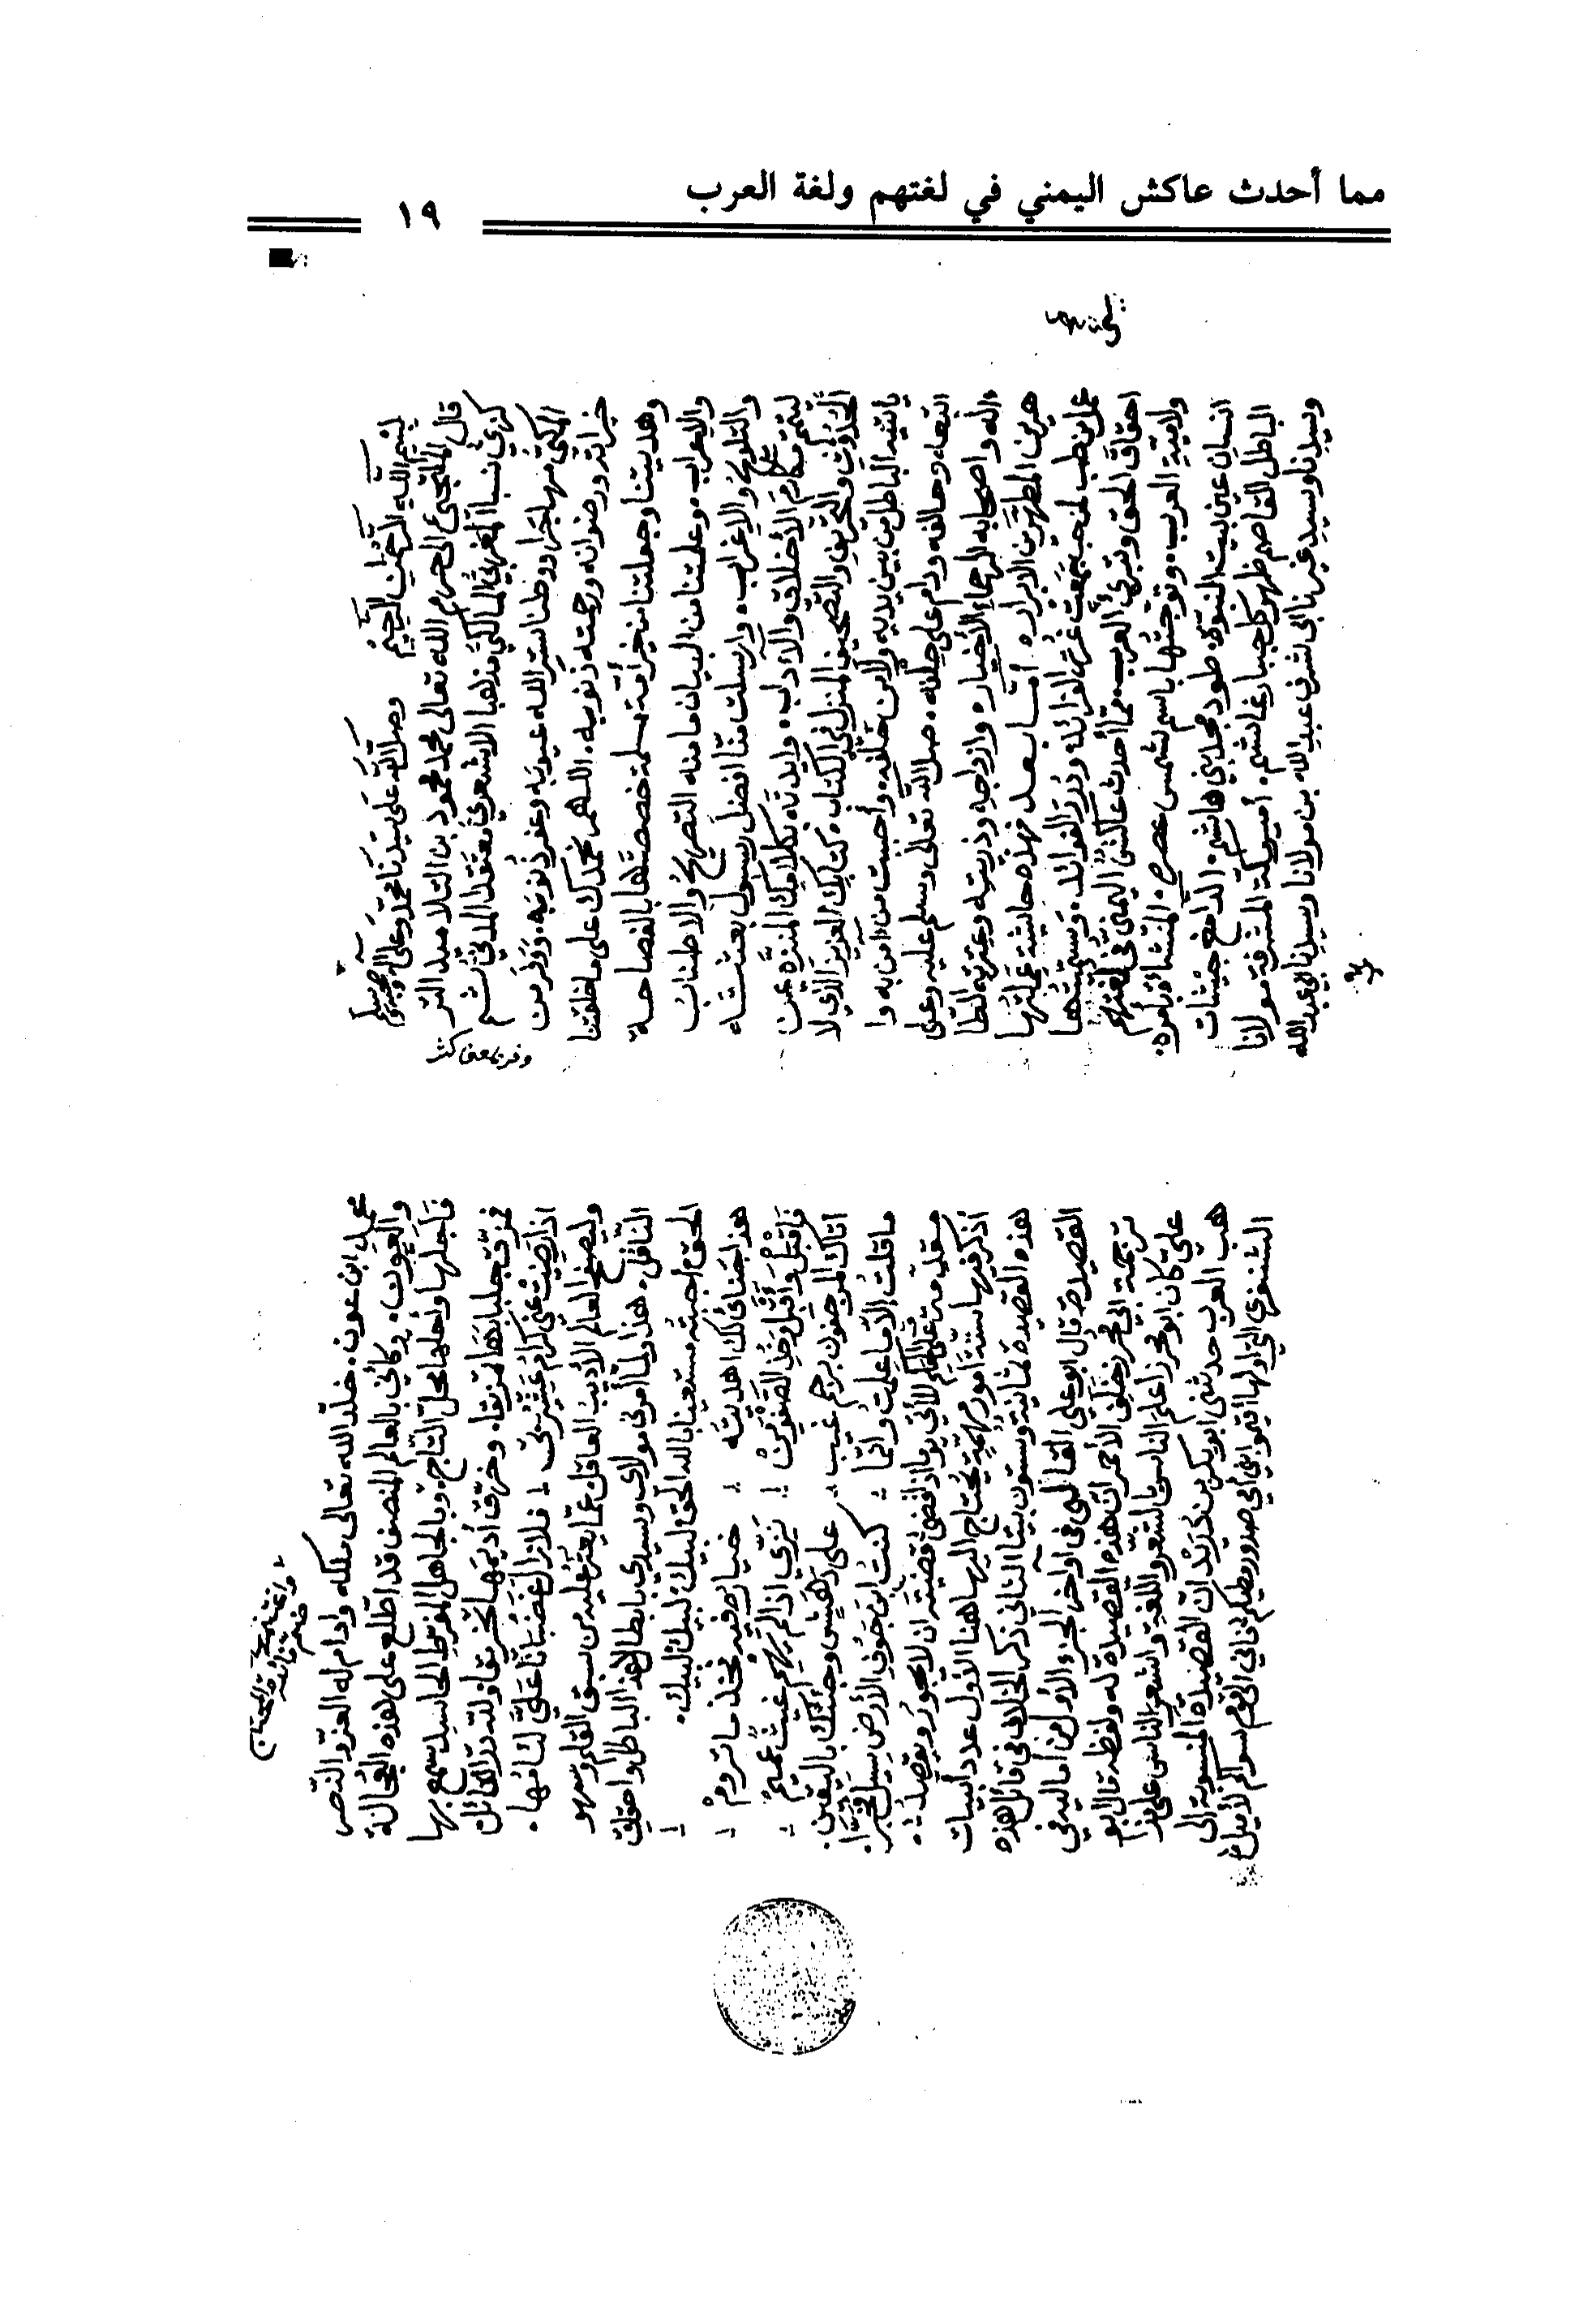 مما أحدث عاكش اليمني في لغتهم ولغة العرب
١٩
بسم الله الرحمن الرحيم وصلى الله على سيدنا محمد وعلى آله وصحبه وسلم
قال الملتجئ الى حرم الله تعالى محمد محمود بن التلاميد التر
كزي نسبا المغربي المالكي مذهبا الاشعري معتقدا المدني ثم
المكي مهاجرا ووطنا ستر الله عيوبه وغفر ذنوبه ووفر من
خيراته ورضوانه ورحمته ذنوبه اللهم نحمدك على ما خلقتنا
وهديتنا وجعلتنا من خير أمة مسلمة خصصتها بالفصاحة
والإعراب وعلمتنا من البيان ما منه التصريح والاطناب
والتلويح والإغراب وأرسلت منا افضل رسول بعثته
لتتمم مكارم الأخلاق والآداب وأيدته بكلامك المنزه عن
الحدوث والتحريف والتصحيف المنزل في الكتاب كتابك العزيز الذي لا
يأتيه الباطل من بين يديه ولا من خلفه وأحببت من آمن به وا
اتبعه وحالفه ودام على حلفه صلى الله تعالى وسلم عليه وعلى
آله واصحابه الرحماء الأخيار وازواجه وذريته وعترته الطا
هرين المطهرين الابرار أما بعد فهذه حاشية عملتها
عمل من طب لمن حب جمعت غرر الفرائد ودرر الفوائد وسميتها
احقاق الحق وتبرئ العرب مما أحدث عاكش اليمني في لغتهم
ولامية العرب وتوجتها باسم شمس عصره المنتشأة بأمره
انسان عين بيت النبوة طود مجد بني هاشم الدامغ جيشات
الباطل القاصم ظهور كل جبار غاشم أمير مكة المشرفة مولانا
وسيدنا وسيد غيرنا الشريف عبد الله بن مولانا وسيدنا ابي عبد الله
محمد ابن عون خلد الله تعالى ملكه وادام له العز والنصر
والعيون وكأني بالعالم المنصف قد اطلع على هذه العجالة
فأجلها وأحلها محل التاج وبالجاهل المفرط الحاسد سمع بها
فمزق جلبابها تمزيقا وخرق أديمها تخريقا ولله در القائل
اذا رضيت عني كرام عشيرتي فلا زال غضبانا علي لئامها
وليصفح العالم الأديب العاقل عما يعثر عليه من سبق القلم وسهو
الناقل هذا ولما أمرني مولاي وسيدي بابطال هذا الباطل واحقاق
الحق أجبته مستعينا بالله الحق لبيك لبيك لبيك
هذا جنائي لك اهديته خياره فيه فخذ ما تروم
اتاك المرجفون برجم غيب على دهش وجئتك باليقين
ما قلت إلا ما علمت وانما كنت ابن جوف الأرض سيل فخبرا
هذه القصيدة ثمانية وستون بيتا الثاني ذكر الخلاف في قائل هذه
القصيدة قال ابو علي القالي في اواخر الجزء الأول من أماليه في
ترجمة ابي محرز خلف الأحمر ان هذه القصيدة له ولفظه قال ابو
علي كان ابو محرز اعلم الناس بالشعر واللغة واشعر الناس على مذا
هب العرب حدثني ابو بكر بن دريد ان القصيدة المنسوبة الى
الشنفرى التي اولها اقيموا بني أمي صدور مطيكم فاني الى قوم سواكم لأميل